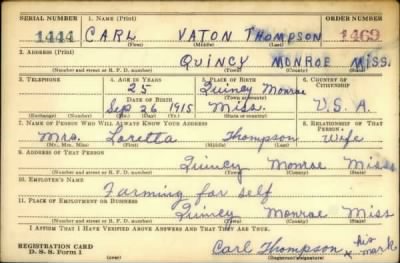 SERIAL NUMBER 1. NAME (Print) ORDER NUMBER
1444 CARL VATON THOMPSON 1469
(First) (Middle) (Last)
2. ADDRESS (Print)
QUINCY MONROE MISS.
(Number and street or R. F. D. number) (Town) (County) (State)
3. TELEPHONE 4. AGE IN YEARS 5. PLACE OF BIRTH 6. COUNTRY OF CITIZENSHIP
25 Quincy Monroe
DATE OF BIRTH (Town or county)
Sep 26 1915 Miss. U.S.A.
(Exchange) (Number) (Mo.) (Day) (Yr.) (State or country)
7. NAME OF PERSON WHO WILL ALWAYS KNOW YOUR ADDRESS 8. RELATIONSHIP OF THAT PERSON
Mrs. Loretta Thompson Wife
(Mr., Mrs., Miss) (First) (Middle) (Last)
9. ADDRESS OF THAT PERSON
Quincy Monroe Miss
(Number and street or R. F. D. number) (Town) (County) (State)
10. EMPLOYER'S NAME
Farming for self
11. PLACE OF EMPLOYMENT OR BUSINESS
Quincy Monroe Miss
(Number and street or R. F. D. number) (Town) (County) (State)
I AFFIRM THAT I HAVE VERIFIED ABOVE ANSWERS AND THAT THEY ARE TRUE.
REGISTRATION CARD
D. S. S. Form 1 (over) Carl Thompson x his mark
(Registrant's signature)